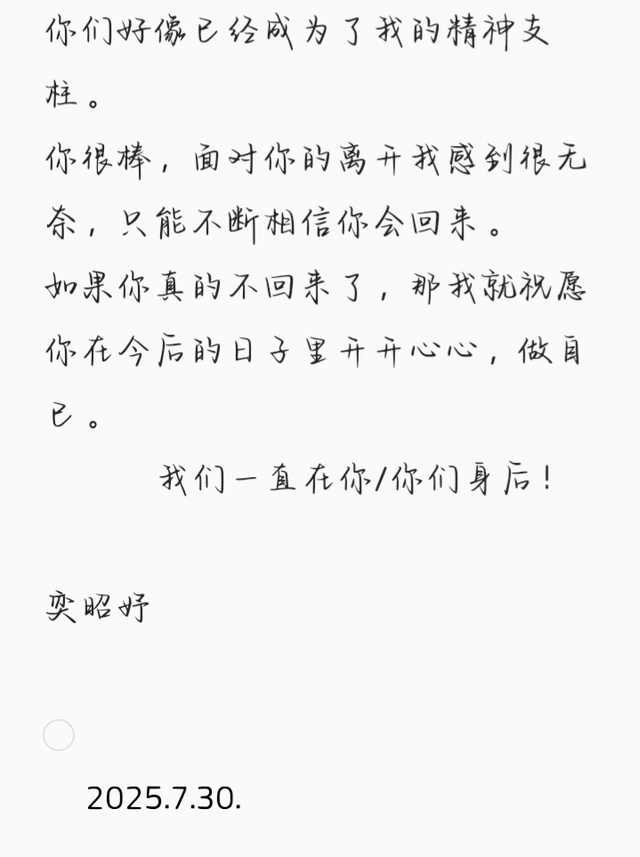 你们好像已经成为了我的精神支
柱。
你很棒，面对你的离开我感到很无
奈，只能不断相信你会回来。
如果你真的不回来了，那我就祝愿
你在今后的日子里开开心心，做自
己。
我们一直在你/你们身后！
奕昭妤
2025.7.30.